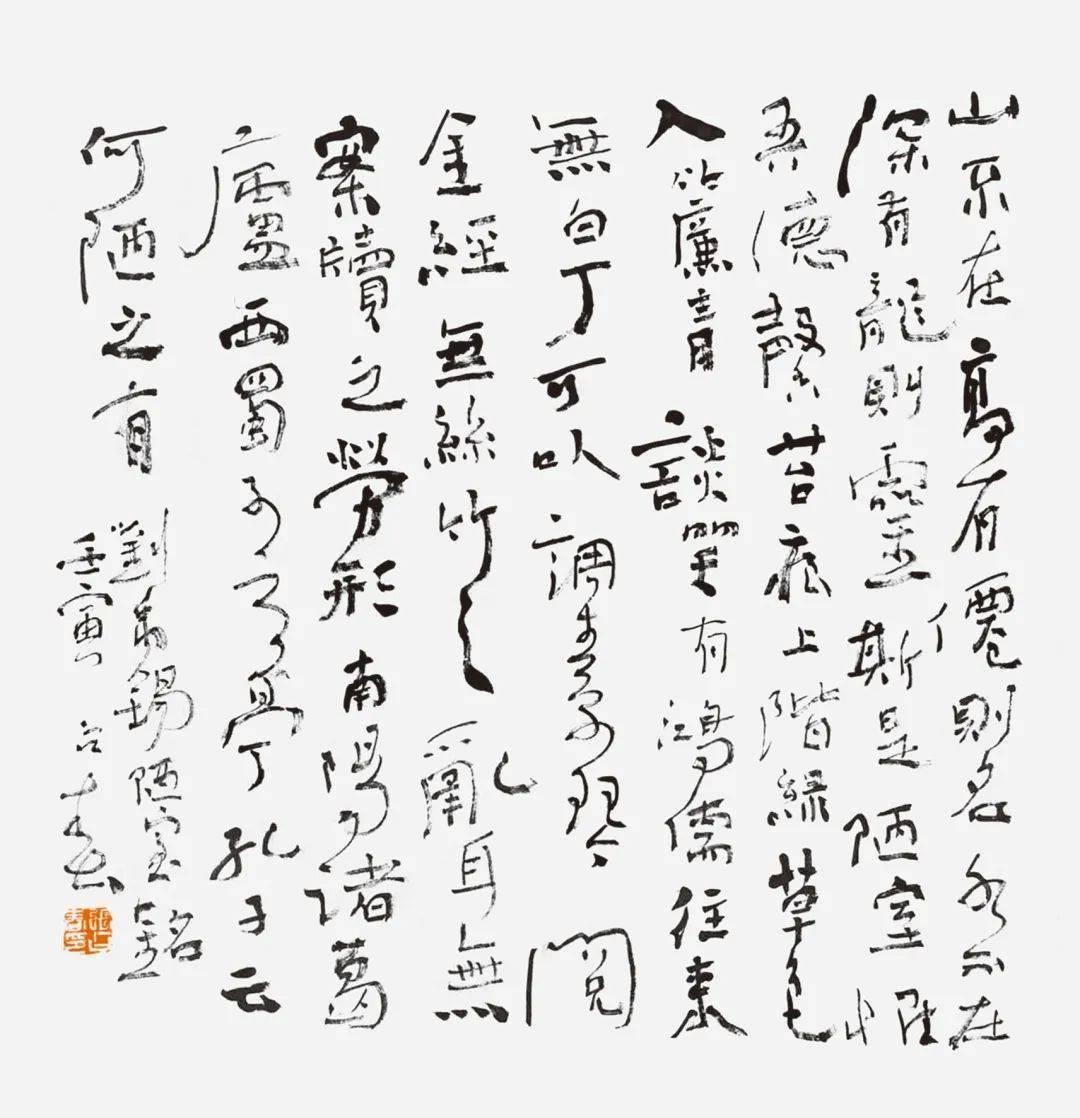 山不在高有僊則名水不在
深有龍則靈斯是陋室惟
吾德馨苔痕上階綠草色
入簾青談笑有鴻儒往來
無白丁可以調素琴閱
金經無絲竹之亂耳無
案牘之勞形南陽諸葛
廬西蜀子云亭孔子云
何陋之有
劉禹錫陋室銘
壬寅